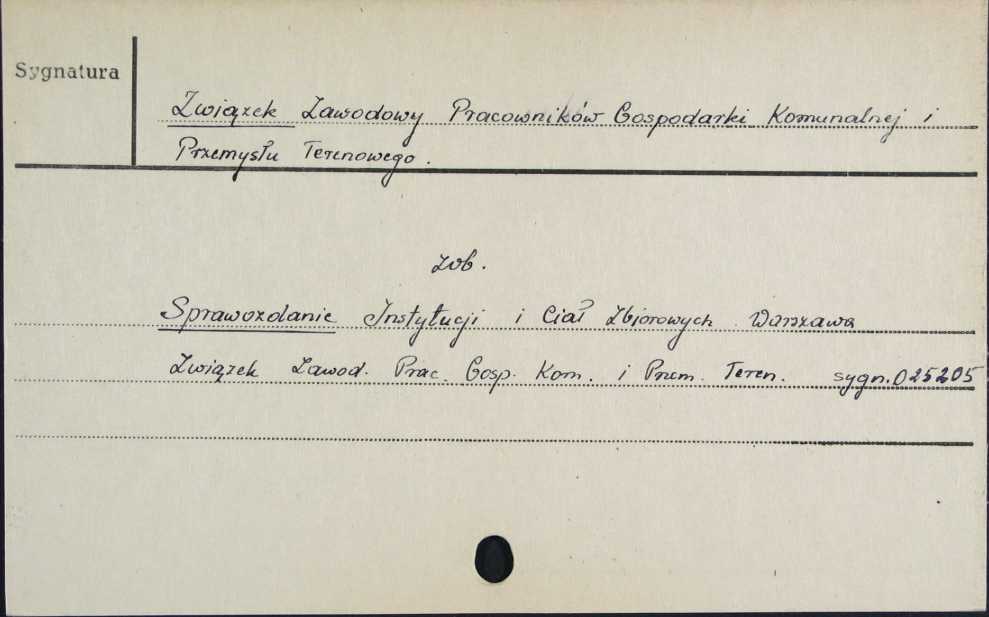 Sygnatura
Związek Zawodowy Pracowników Gospodarki Komunalnej i
Przemysłu Terenowego.
zob.
Sprawozdanie Instytucji i Ciał Zbiorowych Warszawa
Związek Zawod. Prac. Gosp. Kom. i Przem. Teren. sygn. 025205